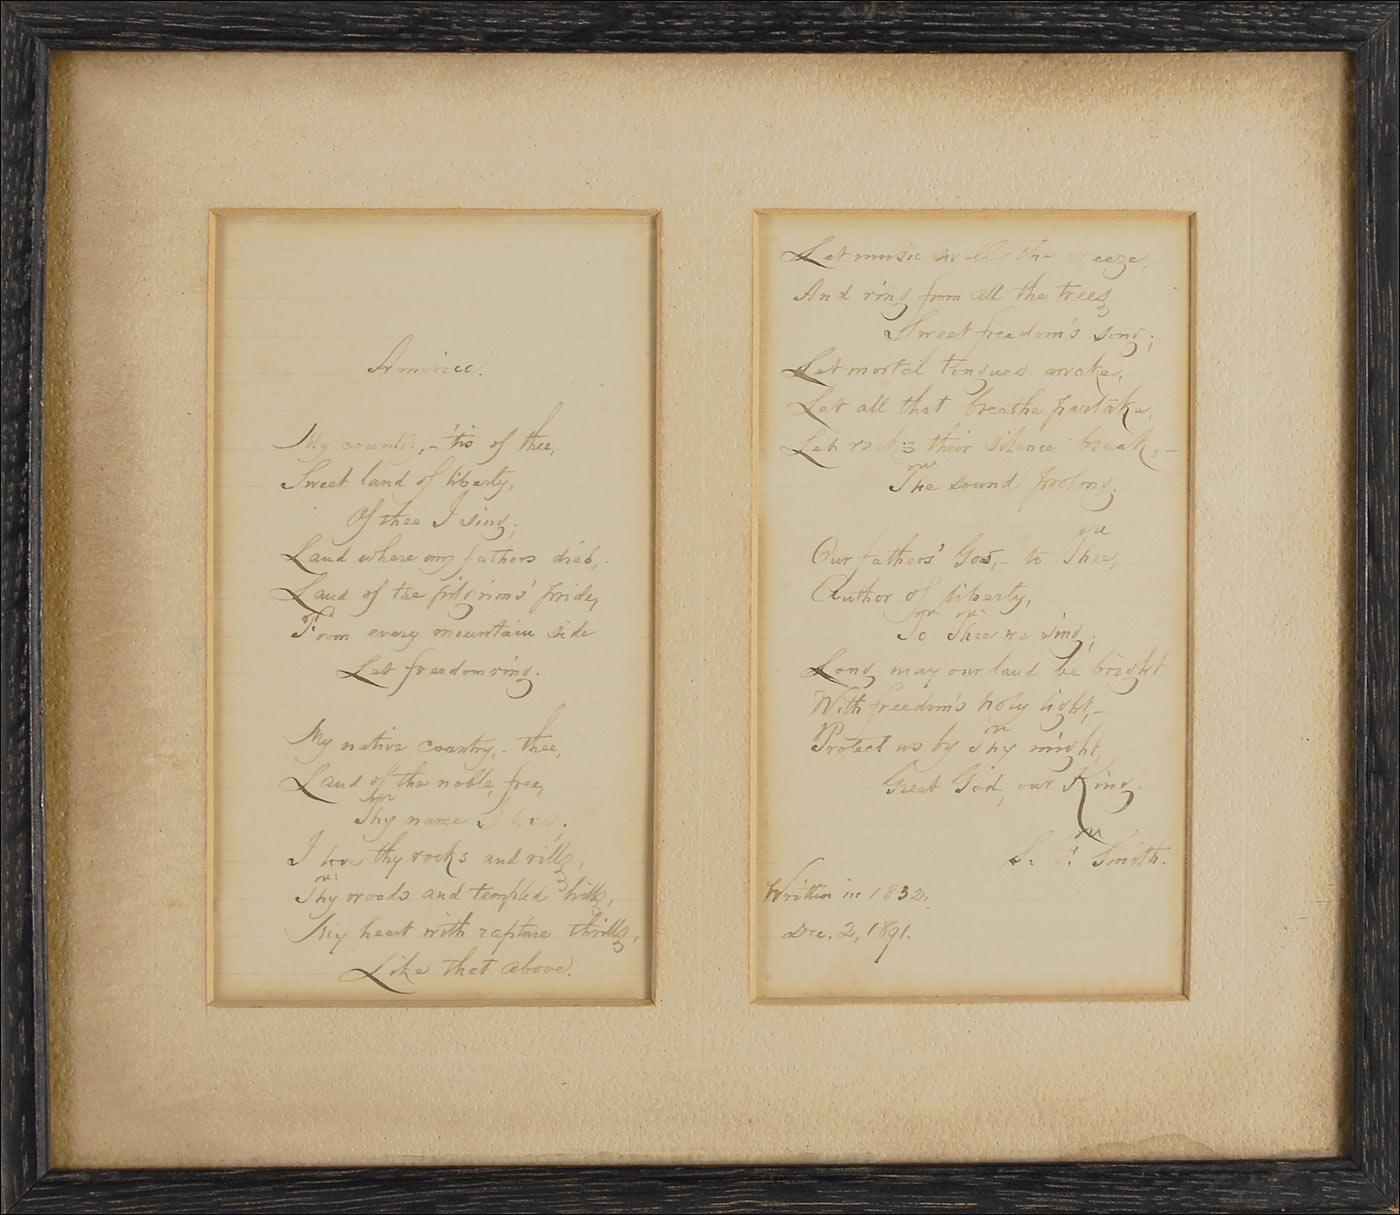 America.
My country, - 'tis of thee,
Sweet land of liberty,
Of thee I sing;
Land where my fathers died, -
Land of the pilgrims' pride,
From every mountain side
Let freedom ring.
My native country, - thee,
Land of the noble, free,
Thy name I love;
I love thy rocks and rills,
Thy woods and templed hills,
My heart with rapture thrills,
Like that above.
Let music swell the breeze,
And ring from all the trees
Sweet freedom's song;
Let mortal tongues awake,
Let all that breathe partake,
Let rocks their silence break, -
The sound prolong.
Our fathers' God, - to Thee,
Author of liberty,
To Thee we sing;
Long may our land be bright
With freedom's holy light, -
Protect us by Thy might,
Great God, our King.
S. F. Smith.
Written in 1832.
Dec. 2, 1891.